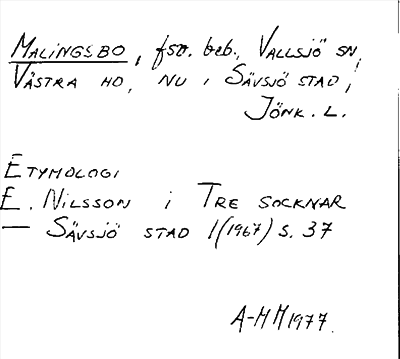 MALINGSBO, fsv. beb., VALLSJÖ SN,
VÄSTRA HD, NU I SÄVSJÖ STAD,
JÖNK. L.
ETYMOLOGI
E. NILSSON i TRE SOCKNAR
— SÄVSJÖ STAD 1(1967) S. 37
A-M M 1977.